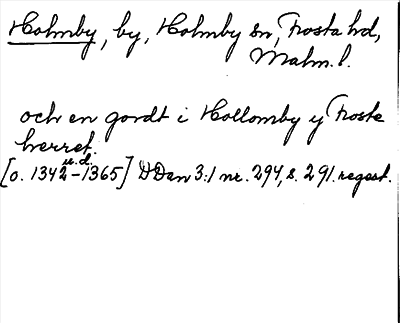 Holmby, by, Holmby sn, Frosta hd,
Malm. l.
och en gordt i Hollomby y Froste
herret.
u. d.
[o. 1342-1365] DDan 3:1 nr. 294, s. 291. regest.